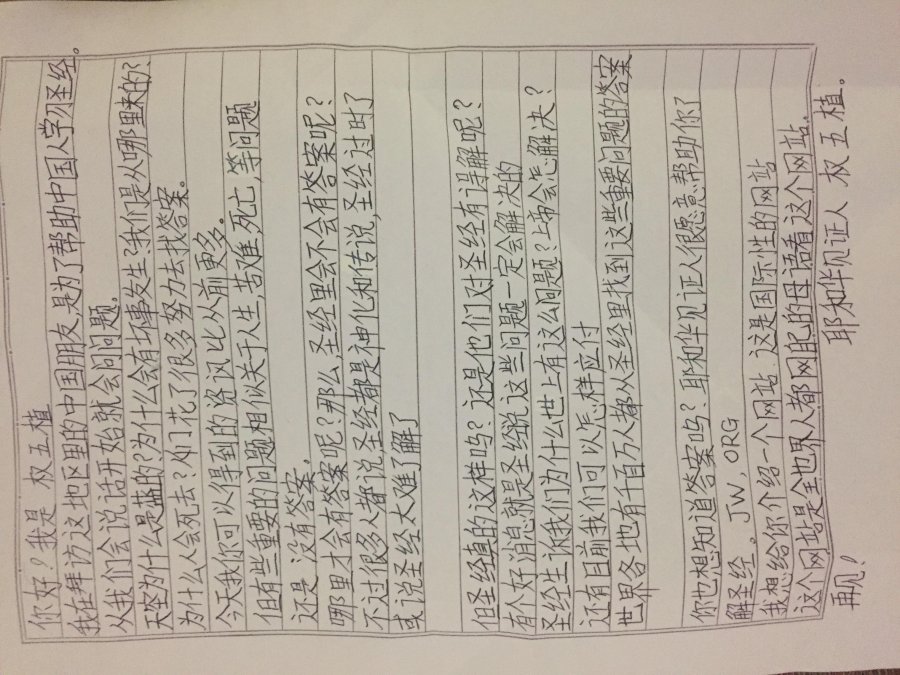 你好！我是 权五植
我在拜访这地区里的中国朋友,是为了帮助中国人学习圣经。
从我们会说话开始就会问问题。
天空为什么是蓝的?为什么会有坏事发生?我们是从哪里来的?
为什么人会死去?人们花了很多努力去找答案。
今天我们可以得到的资讯比从前更多。
但有些重要的问题相似关于人生,苦难,死亡,等问题
还是没有答案。
哪里才会有答案呢?那么,圣经里会不会有答案呢?
不过很多人都说圣经都是神化和传说,圣经过时了
或说圣经太难了解了
但圣经真的这样吗?还是他们对圣经有误解呢?
有个好消息就是圣经说这些问题一定会解决的
圣经告诉我们为什么世上有这么问题?上帝会怎解决?
还有目前我们可以怎样应付
世界各地有千百万人都从圣经里找到这些重要问题的答案
你也想知道答案吗?耶和华见证人很愿意帮助你了
解圣经。JW.ORG
我想给你介绍一个网站.这是国际性的网站
这个网站是全世界人都网配的母语看这个网站.
再见! 耶和华见证人 权五植.